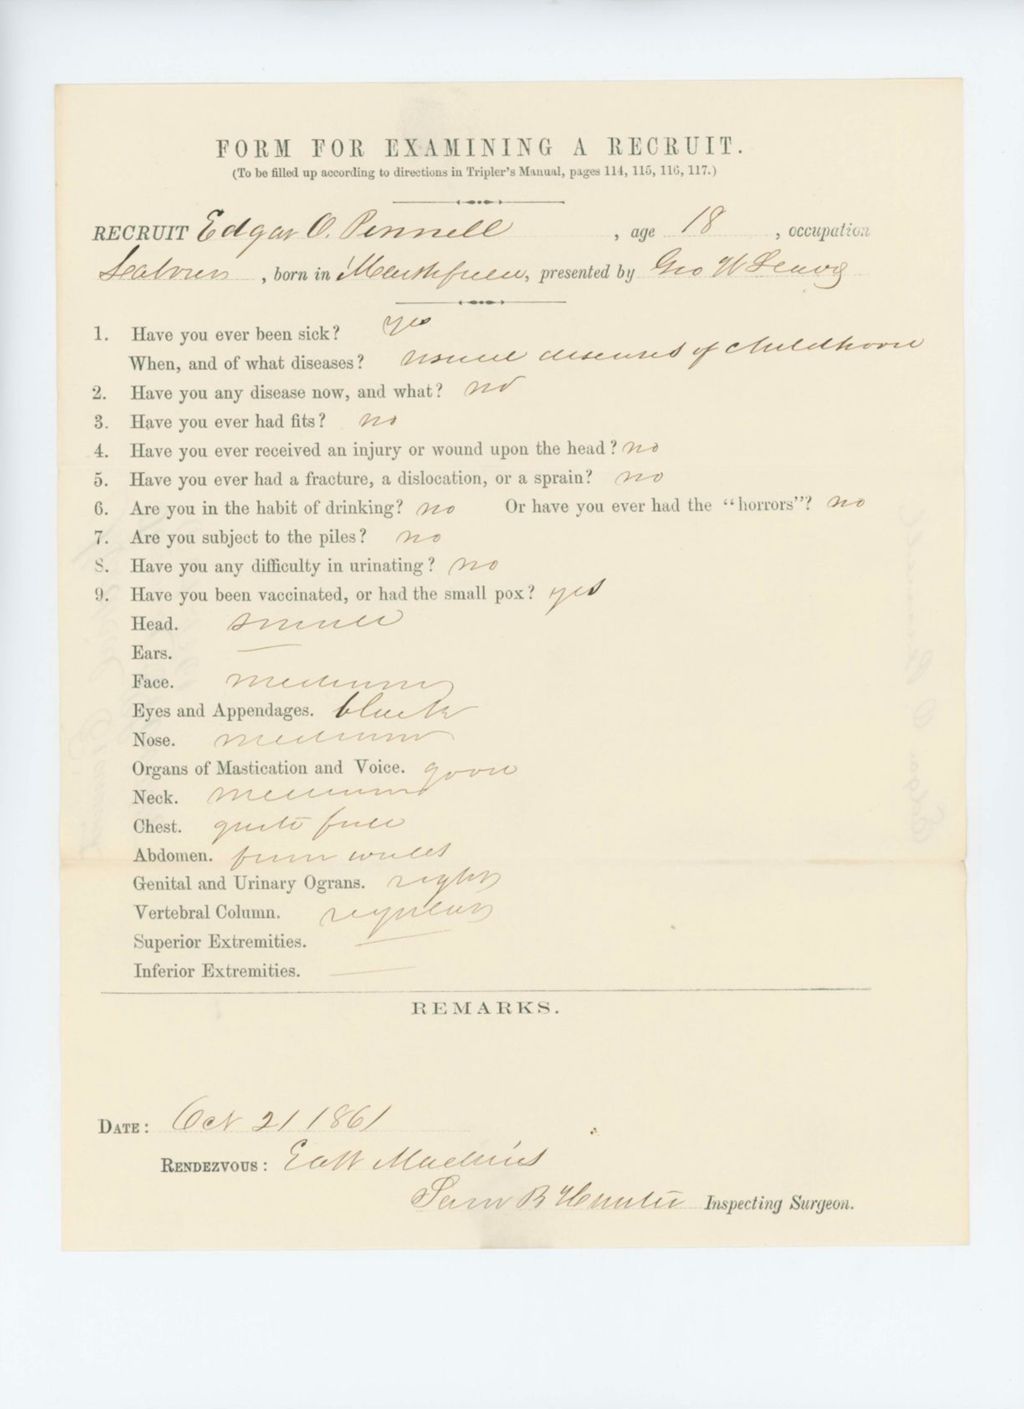 FORM FOR EXAMINING A RECRUIT.
(To be filled up according to directions in Tripler's Manual, pages 114, 115, 116, 117.)
RECRUIT Edgar O. Pennell, age 18, occupation
, born in, presented by Geo W
1. Have you ever been sick? yes
When, and of what diseases? usual diseases of childhood
2. Have you any disease now, and what? no
3. Have you ever had fits? no
4. Have you ever received an injury or wound upon the head? no
5. Have you ever had a fracture, a dislocation, or a sprain? no
6. Are you in the habit of drinking? no Or have you ever had the "horrors"? no
7. Are you subject to the piles? no
8. Have you any difficulty in urinating? no
9. Have you been vaccinated, or had the small pox? yes
Head. small
Ears. —
Face. medium
Eyes and Appendages. black
Nose. medium
Organs of Mastication and Voice. good
Neck. medium
Chest. quite full
Abdomen. firm walls
Genital and Urinary Ograns. right
Vertebral Column. regular
Superior Extremities. —
Inferior Extremities. —
REMARKS.
DATE: Oct 21 1861
RENDEZVOUS: East Machias
Sam B Hunter Inspecting Surgeon.